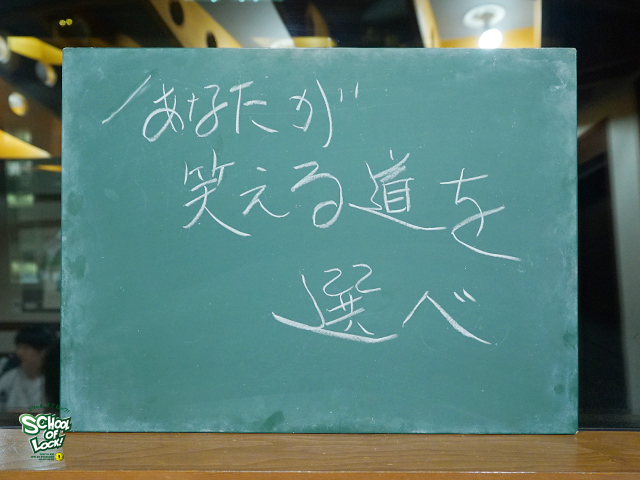 あなたが
笑える道を
選べ
SCHOOL
OF
LOCK!